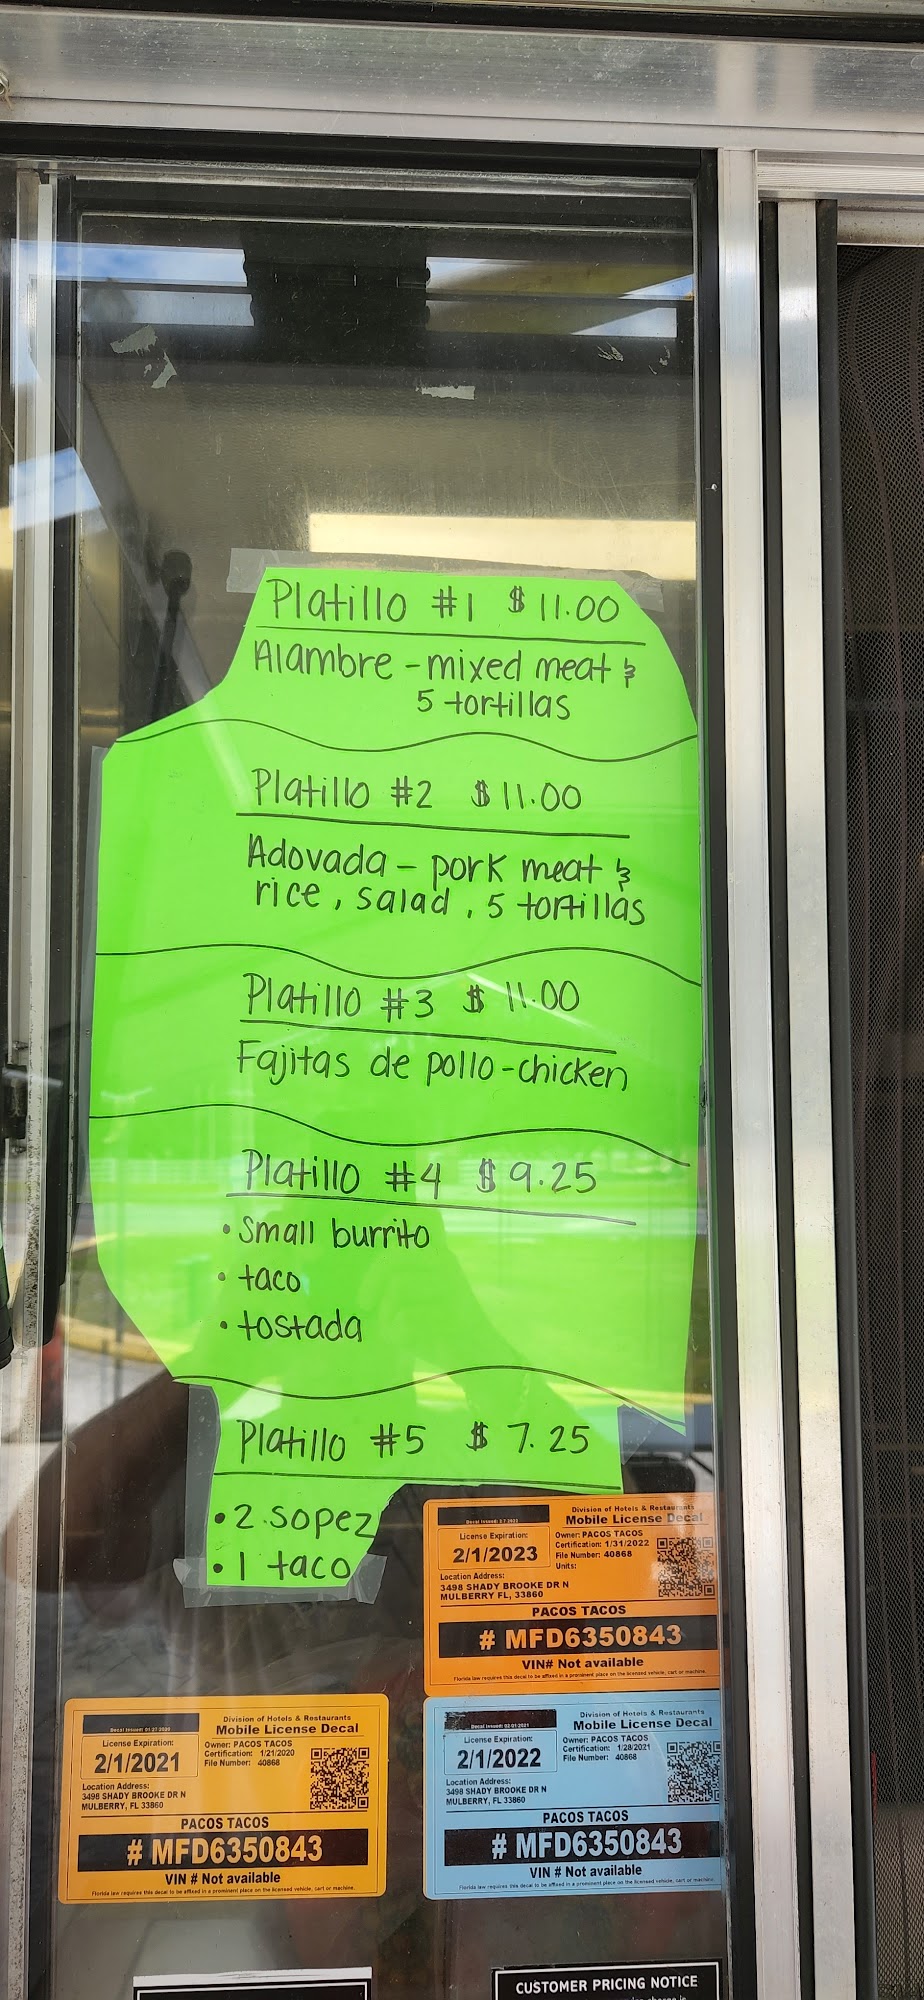 Platillo #1 $11.00
Alambre - mixed meat &
5 tortillas
Platillo #2 $11.00
Adovada - pork meat &
rice, salad, 5 tortillas
Platillo #3 $11.00
Fajitas de pollo - chicken
Platillo #4 $9.25
• small burrito
• taco
• tostada
Platillo #5 $7.25
• 2 sopez
• 1 taco
Division of Hotels & Restaurants
Mobile License Decal
License Expiration:
2/1/2023
Owner: PACOS TACOS
Certification: 1/31/2022
File Number: 40868
Units:
Location Address:
3498 SHADY BROOKE DR N
MULBERRY FL, 33860
PACOS TACOS
# MFD6350843
VIN# Not available
Florida law requires this decal to be affixed in a prominent place on the licensed vehicle, cart or machine.
Division of Hotels & Restaurants
Mobile License Decal
License Expiration:
2/1/2021
Owner: PACOS TACOS
Certification: 1/21/2020
File Number: 40868
Location Address:
3498 SHADY BROOKE DR N
MULBERRY, FL 33860
PACOS TACOS
# MFD6350843
VIN # Not available
Florida law requires this decal to be affixed in a prominent place on the licensed vehicle, cart or machine.
Division of Hotels & Restaurants
Mobile License Decal
License Expiration:
2/1/2022
Owner: PACOS TACOS
Certification: 1/28/2021
File Number: 40868
Location Address:
3498 SHADY BROOKE DR N
MULBERRY, FL 33860
PACOS TACOS
# MFD6350843
VIN # Not available
Florida law requires this decal to be affixed in a prominent place on the licensed vehicle, cart or machine.
CUSTOMER PRICING NOTICE